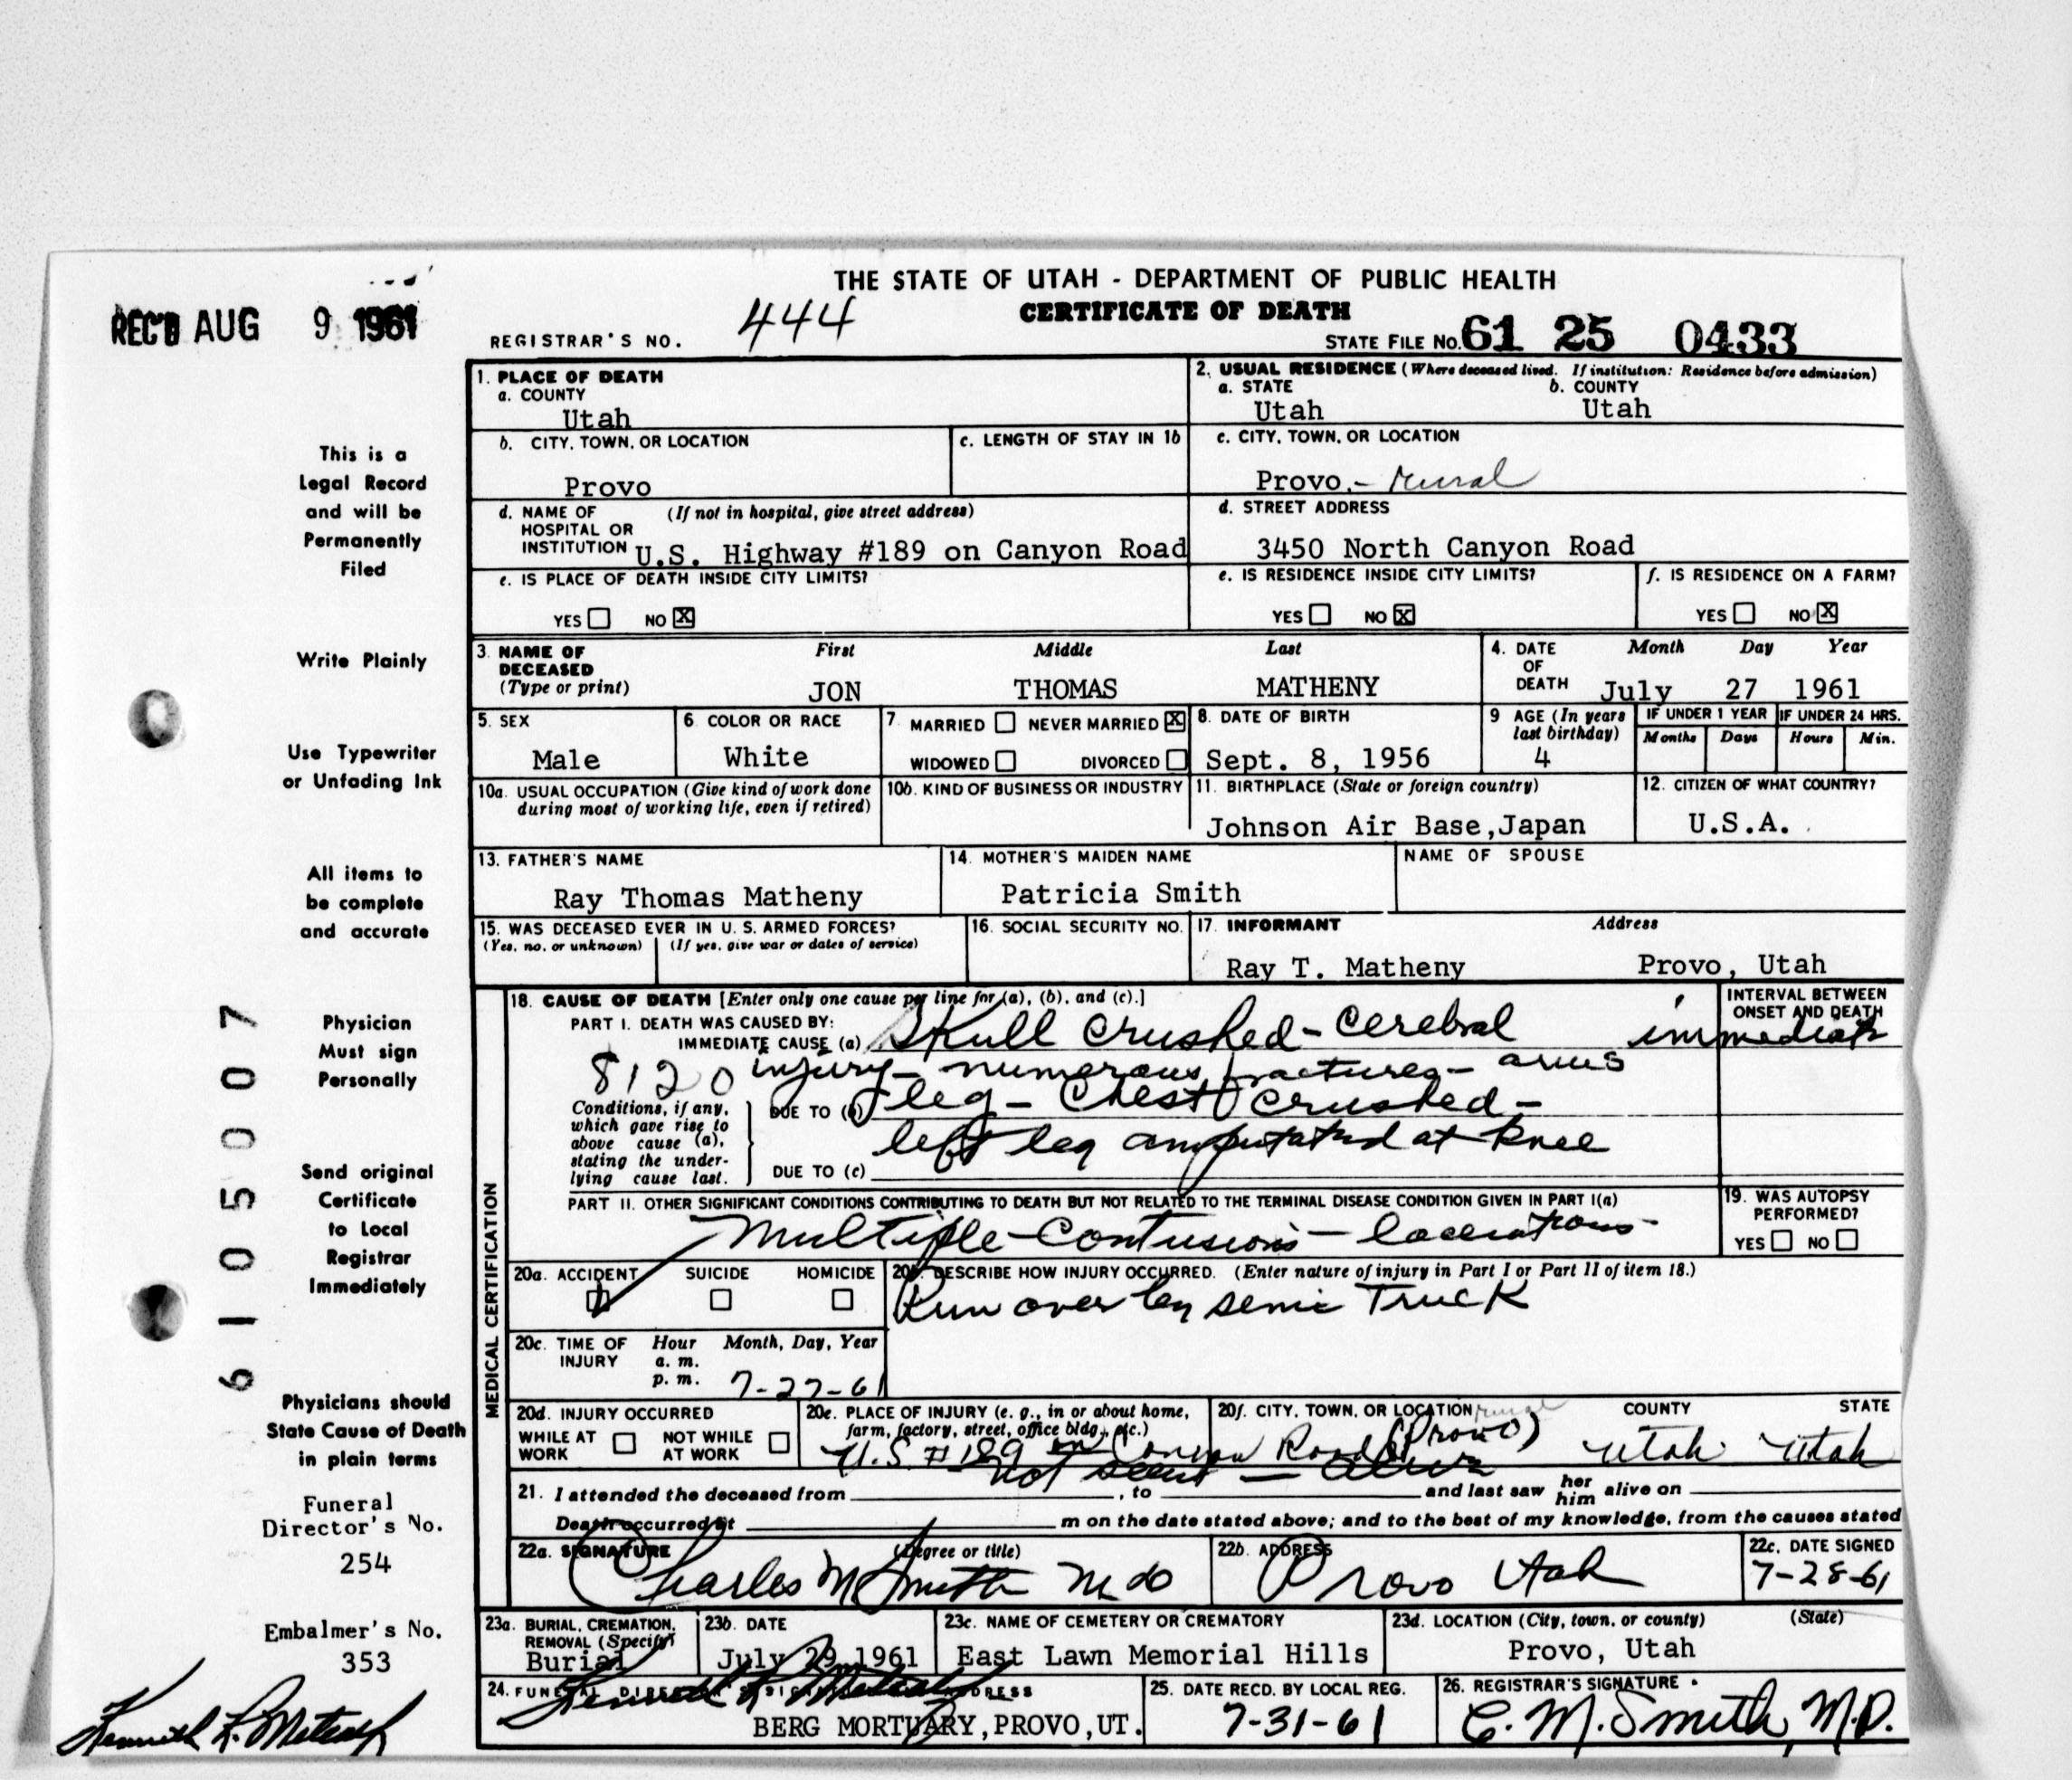 THE STATE OF UTAH - DEPARTMENT OF PUBLIC HEALTH
CERTIFICATE OF DEATH
REC'D AUG 9 1961
REGISTRAR'S NO. 444
STATE FILE NO. 61 25 0433
This is a
Legal Record
and will be
Permanently
Filed
Write Plainly
Use Typewriter
or Unfading Ink
All items to
be complete
and accurate
Physician
Must sign
Personally
Send original
Certificate
to Local
Registrar
Immediately
Physicians should
State Cause of Death
in plain terms
Funeral
Director's No.
254
Embalmer's No.
353
Kenneth L. Metcalf
61 05 007
1. PLACE OF DEATH
a. COUNTY
Utah
2. USUAL RESIDENCE (Where deceased lived. If institution: Residence before admission)
a. STATE b. COUNTY
Utah Utah
b. CITY, TOWN, OR LOCATION
Provo
c. LENGTH OF STAY IN 1b
c. CITY, TOWN, OR LOCATION
Provo.- rural
d. NAME OF (If not in hospital, give street address)
HOSPITAL OR
INSTITUTION U.S. Highway #189 on Canyon Road
d. STREET ADDRESS
3450 North Canyon Road
e. IS PLACE OF DEATH INSIDE CITY LIMITS?
YES NO X
e. IS RESIDENCE INSIDE CITY LIMITS?
YES NO X
f. IS RESIDENCE ON A FARM?
YES NO X
3. NAME OF DECEASED (Type or print)
First Middle Last
JON THOMAS MATHENY
4. DATE OF DEATH
Month Day Year
July 27 1961
5. SEX
Male
6. COLOR OR RACE
White
7. MARRIED NEVER MARRIED X
WIDOWED DIVORCED
8. DATE OF BIRTH
Sept. 8, 1956
9 AGE (In years last birthday)
4
IF UNDER 1 YEAR
Months Days
IF UNDER 24 HRS.
Hours Min.
10a. USUAL OCCUPATION (Give kind of work done
during most of working life, even if retired)
10b. KIND OF BUSINESS OR INDUSTRY
11. BIRTHPLACE (State or foreign country)
Johnson Air Base,Japan
12. CITIZEN OF WHAT COUNTRY?
U.S.A.
13. FATHER'S NAME
Ray Thomas Matheny
14. MOTHER'S MAIDEN NAME
Patricia Smith
NAME OF SPOUSE
15. WAS DECEASED EVER IN U. S. ARMED FORCES?
(Yes, no, or unknown) (If yes, give war or dates of service)
16. SOCIAL SECURITY NO.
17. INFORMANT Address
Ray T. Matheny Provo, Utah
MEDICAL CERTIFICATION
18. CAUSE OF DEATH [Enter only one cause per line for (a), (b), and (c).]
INTERVAL BETWEEN
ONSET AND DEATH
PART I. DEATH WAS CAUSED BY:
IMMEDIATE CAUSE (a) Skull crushed - cerebral immediate
8120 injury - numerous fractures - arms
Conditions, if any,
which gave rise to
above cause (a),
stating the under-
lying cause last.
DUE TO (b) leg - Chest crushed -
left leg amputated at knee
DUE TO (c)
PART II. OTHER SIGNIFICANT CONDITIONS CONTRIBUTING TO DEATH BUT NOT RELATED TO THE TERMINAL DISEASE CONDITION GIVEN IN PART I(a)
Multiple - Contusions - lacerations
19. WAS AUTOPSY
PERFORMED?
YES NO
20a. ACCIDENT SUICIDE HOMICIDE
20b. DESCRIBE HOW INJURY OCCURRED. (Enter nature of injury in Part I or Part II of item 18.)
Run over by semi Truck
20c. TIME OF INJURY
Hour Month, Day, Year
a. m.
p. m. 7-27-61
20d. INJURY OCCURRED
WHILE AT WORK NOT WHILE AT WORK
20e. PLACE OF INJURY (e. g., in or about home,
farm, factory, street, office bldg., etc.)
U.S #189 on Canyon Road
20f. CITY, TOWN, OR LOCATION COUNTY STATE
rural
(Provo) Utah Utah
not seen - alive
21. I attended the deceased from , to and last saw her him alive on
Death occurred at m on the date stated above; and to the best of my knowledge, from the causes stated
22a. SIGNATURE (Degree or title)
Charles M Smith MD
22b. ADDRESS
Provo Utah
22c. DATE SIGNED
7-28-61
23a. BURIAL, CREMATION,
REMOVAL (Specify)
Burial
23b. DATE
July 29 1961
23c. NAME OF CEMETERY OR CREMATORY
East Lawn Memorial Hills
23d. LOCATION (City, town, or county) (State)
Provo, Utah
24. FUNERAL DIRECTOR'S SIGNATURE ADDRESS
Kenneth L. Metcalf
BERG MORTUARY,PROVO,UT.
25. DATE RECD. BY LOCAL REG.
7-31-61
26. REGISTRAR'S SIGNATURE
C. M. Smith, M.D.